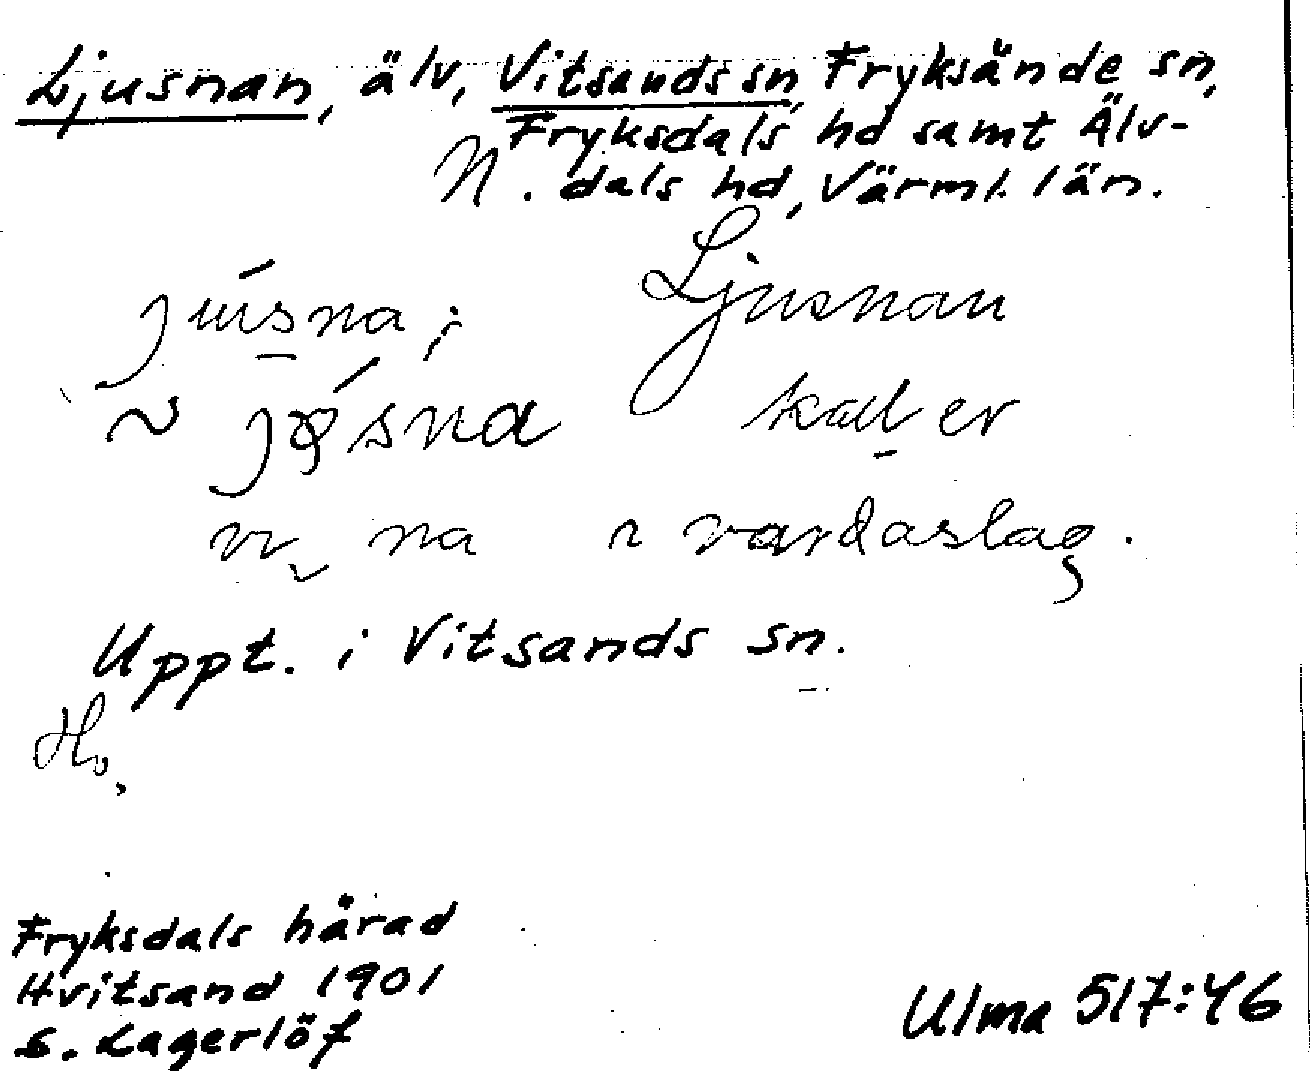 Ljusnan, älv, Vitsands sn, Fryksände sn,
Fryksdals hd samt Älv-
N. dals hd, Värml. län.
júsna; Ljusnan
~ jǿsna kall er
vi na i vardaslag.
Uppt. i Vitsands sn.
Ho.
Fryksdals härad
Hvitsand 1901
S. Lagerlöf
Ulma 517:46